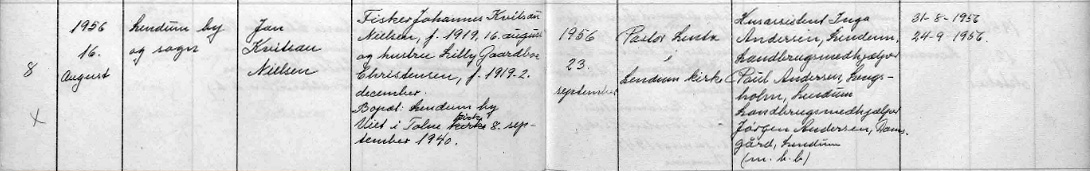 8
X
1956
16.
August
Lendum by
og sogn
Jan
Kvitsau
Nielsen
Fisker Johannes Kvitsau
Nielsen, f. 1919, 16. august
og hustru Lilly Gaardbo
Christensen, f. 1919-2.
december.
Bopæl: Lendum by
Viet i Tolne kirke 8. sep-
tember 1940.
1956
23.
september
Pastor Lentz
i
Lendum kirke
Husassistent Inga
Andersen, Lendum,
Landbrugsmedhjælper
Poul Andersen, Lengs-
holm, Lendum
Landbrugsmedhjælper
Jørgen Andersen, Dams-
gård, Lendum
(m. b. b)
31-8-1956
24-9 1956.